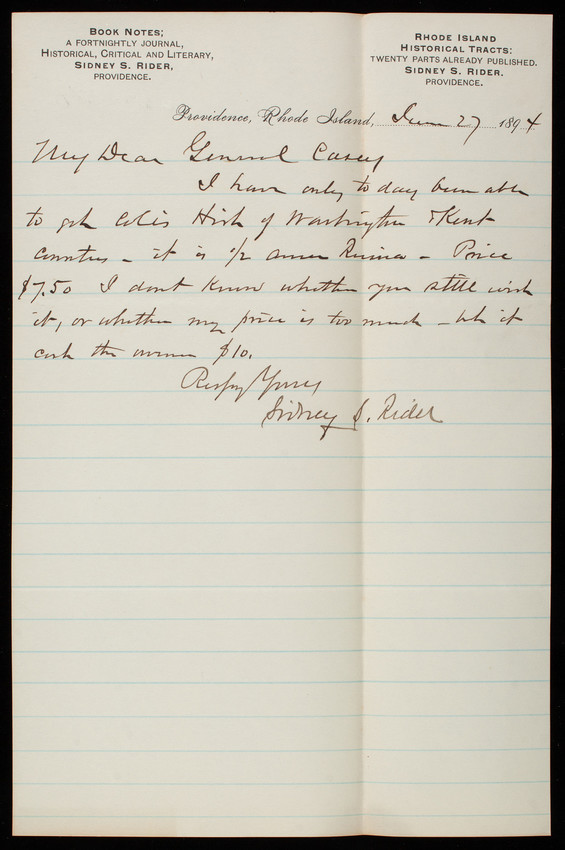 BOOK NOTES;
A FORTNIGHTLY JOURNAL,
HISTORICAL, CRITICAL AND LITERARY,
SIDNEY S. RIDER,
PROVIDENCE.
RHODE ISLAND
HISTORICAL TRACTS:
TWENTY PARTS ALREADY PUBLISHED.
SIDNEY S. RIDER.
PROVIDENCE.
Providence, Rhode Island, June 27 1894
My Dear General Casey
I have only to day been able
to get Coles Hist of Washington & Kent
Counties – it is 1/2 – Price
$7.50 I dont know whether you still wish
it, or whether my price is too much – but it
cost the owner $10.
Respy Yours
Sidney S. Rider